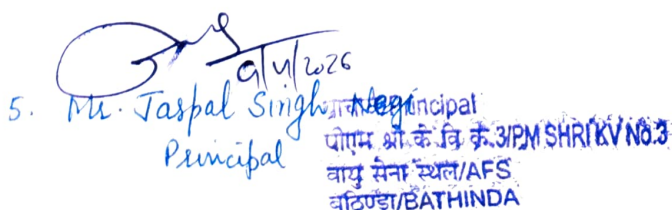 9/4/2026
5. Mr. Jaspal Singh Negi
Principal
प्राचार्य/Principal
पीएम श्री के वि क्र.3/PM SHRI KV NO.3
वायु सेना स्थल/AFS
बठिण्डा/BATHINDA